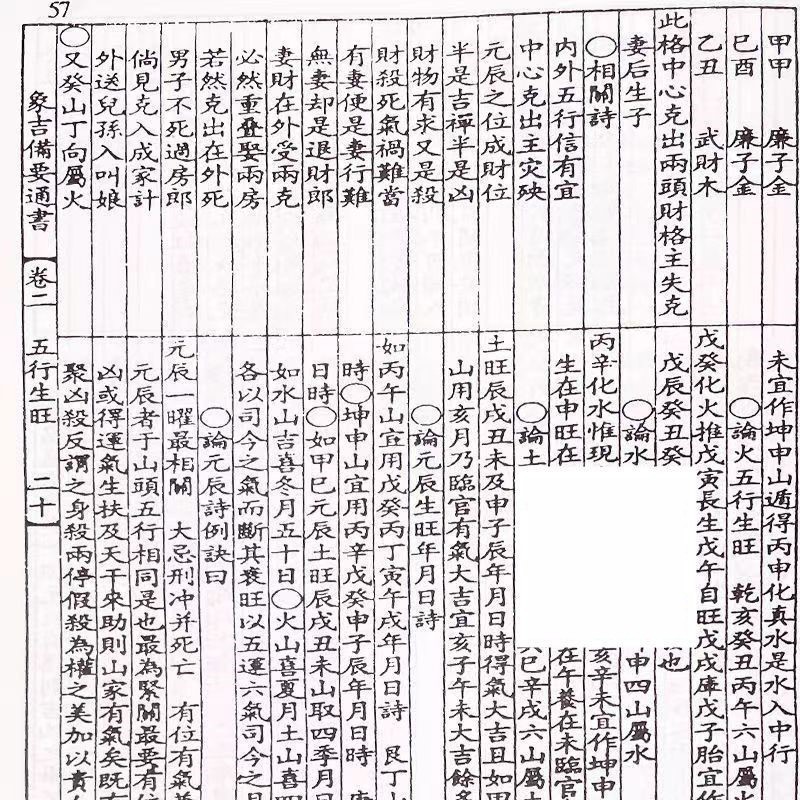 57
甲甲 廉子金
巳酉 廉子金
乙丑 武財木
此格中心克出兩頭財格主失克
妻后生子
○相關詩
內外五行信有宜
中心克出主灾殃
元辰之位成財位
半是吉禪半是凶
財物有求又是殺
財殺死氣禍難當
有妻便是妻行難
無妻却是退財郎
妻財在外受兩克
必然重疊娶兩房
若然克出在外死
男子不死過房郎
倘見克入成家計
外送兒孫入叫娘
○又癸山丁向屬火
未宜作坤申山遁得丙申化真水是水入中行
○論火五行生旺 乾亥癸丑丙午六山屬
戊癸化火推戊寅長生戊午自旺戊戌庫戊子胎宜作
戊辰癸丑癸
也
○論水
申四山屬水
丙辛化水惟現
亥辛未宜作坤申
生在申旺在
在午養在未臨官
○論土
巳辛戌六山屬土
土旺辰戌丑未及申子辰年月日時得氣大吉且如甲
山用亥月乃臨官有氣大吉宜亥子午未大吉餘多
○論元辰生旺年月日詩
如丙午山宜用戊癸丙丁寅午戌年月日詩 艮丁山
時○坤申山宜用丙辛戊癸申子辰年月日時
日時○如甲巳元辰土旺辰戌丑未山取四季月日
如水山吉喜冬月五十日○火山喜夏月土山喜四
各以司今之氣而斷其衰旺以五運六氣司今之
○論元辰詩例訣曰
元辰一曜最相關 大忌刑冲并死亡 有位有氣
元辰者于山頭五行相同是也最為緊關最要有位
凶或得運氣生扶及天干來助則山家有氣矣既有
聚凶殺反謂之身殺兩停假殺為權之美加以貴
象吉備要通書 卷二 五行生旺 二十